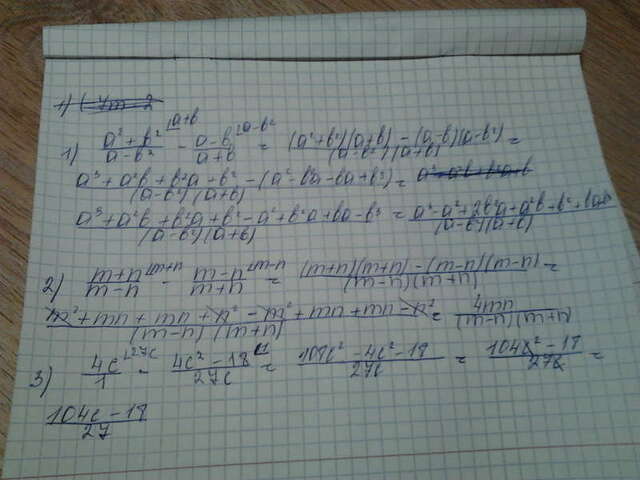 1)
1) (a²+b²)/(a-b²) |a+b - (a-b)/(a+b) |a-b² = ((a²+b²)(a+b) - (a-b)(a-b²))/((a-b²)(a+b)) =
(a³+a²b+b²a+b² - (a²-b²a-ba+b³))/((a-b²)(a+b)) =
(a³+a²b+b²a+b³-a²+b²a+ba-b³)/((a-b²)(a+b)) =
2) (m+n)/(m-n) |m+n - (m-n)/(m+n) |m-n = ((m+n)(m+n) - (m-n)(m-n))/((m-n)(m+n)) =
(m²+mn+mn+n²-m²+mn+mn-n²)/((m-n)(m+n)) = 4mn/((m-n)(m+n))
3) 4c/1 |27c - (4c²-18)/27c = (108c²-4c²-18)/27c = (104c²-18)/27c =
(104c-18)/27